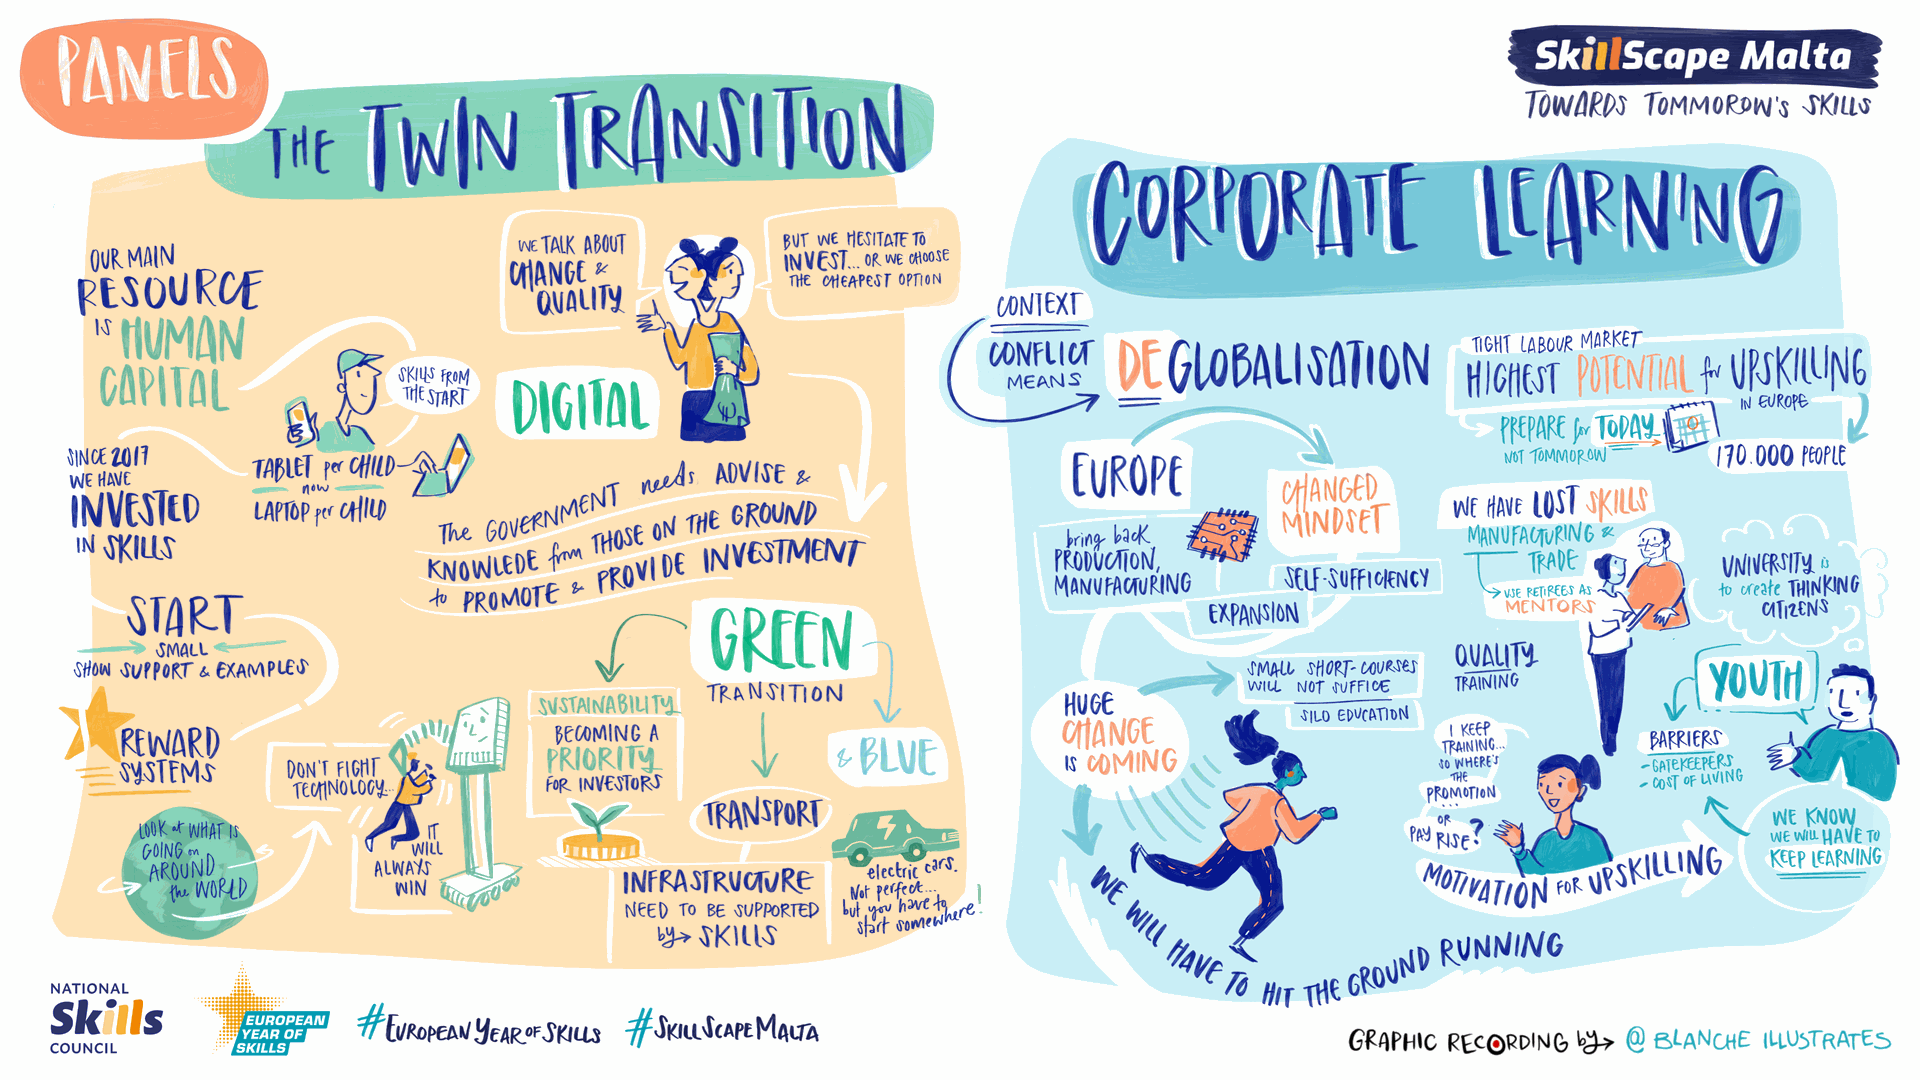 PANELS
THE TWIN TRANSITION
OUR MAIN
RESOURCE
IS HUMAN
CAPITAL
SKILLS FROM
THE START
SINCE 2017
WE HAVE
INVESTED
IN SKILLS
TABLET per CHILD
now
LAPTOP per CHILD
START
SMALL
SHOW SUPPORT & EXAMPLES
REWARD
SYSTEMS
LOOK at WHAT IS
GOING on
AROUND
the WORLD
DON'T FIGHT
TECHNOLOGY...
IT
WILL
ALWAYS
WIN
WE TALK ABOUT
CHANGE &
QUALITY
BUT WE HESITATE TO
INVEST... OR WE CHOOSE
THE CHEAPEST OPTION
DIGITAL
The GOVERNMENT needs ADVISE &
KNOWLEDE from THOSE ON THE GROUND
to PROMOTE & PROVIDE INVESTMENT
GREEN
TRANSITION
& BLUE
SUSTAINABILITY
BECOMING A
PRIORITY
FOR INVESTORS
TRANSPORT
INFRASTRUCTURE
NEED TO BE SUPPORTED
by SKILLS
electric cars.
Not perfect...
but you have to
start somewhere!
SkillScape Malta
TOWARDS TOMMOROW'S SKILLS
CORPORATE LEARNING
CONTEXT
CONFLICT
MEANS
DEGLOBALISATION
EUROPE
bring back
PRODUCTION,
MANUFACTURING
CHANGED
MINDSET
SELF-SUFFICIENCY
EXPANSION
HUGE
CHANGE
IS COMING
SMALL SHORT-COURSES
WILL NOT SUFFICE
SILO EDUCATION
WE WILL HAVE TO HIT THE GROUND RUNNING
TIGHT LABOUR MARKET
HIGHEST POTENTIAL for UPSKILLING
IN EUROPE
PREPARE for TODAY
NOT TOMMOROW
170.000 PEOPLE
WE HAVE LOST SKILLS
MANUFACTURING &
TRADE
USE RETIREES AS
MENTORS
UNIVERSITY is
to create THINKING
CITIZENS
QUALITY
TRAINING
I KEEP
TRAINING...
SO WHERE'S
THE
PROMOTION
...
OR
PAY RISE?
MOTIVATION FOR UPSKILLING
YOUTH
BARRIERS
- GATEKEEPERS
- COST OF LIVING
WE KNOW
WE WILL HAVE TO
KEEP LEARNING
NATIONAL
Skills
COUNCIL
EUROPEAN
YEAR OF
SKILLS
#EUROPEANYEAROFSKILLS
#SKILLSCAPEMALTA
GRAPHIC RECORDING by @ BLANCHE ILLUSTRATES